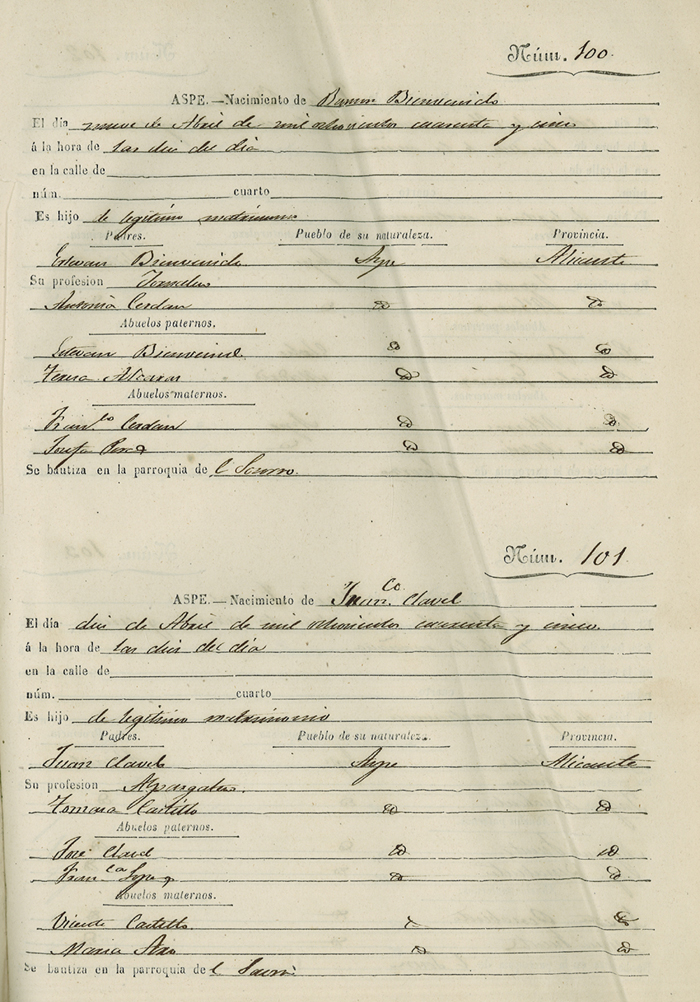 Núm. 100.
ASPE.—Nacimiento de Ramon Bienvenido
El día nueve de Abril de mil ochocientos cuarenta y cinco
á la hora de las diez del dia
en la calle de
núm. cuarto
Es hijo de legitimo matrimonio
Padres. Pueblo de su naturaleza. Provincia.
Estevan Bienvenido Aspe Alicante
Su profesion Jornalero
Antonia Cerdan
Abuelos paternos.
Estevan Bienvenido
Teresa Alcaraz
Abuelos maternos.
Fran.co Cerdan
Josefa
Se bautiza en la parroquia de l Socorro.
Núm. 101
ASPE.—Nacimiento de Fran.co Clavel
El día diez de Abril de mil ochocientos cuarenta y cinco
á la hora de las diez del dia
en la calle de
núm. cuarto
Es hijo de legitimo matrimonio
Padres. Pueblo de su naturaleza. Provincia.
Juan Clavel Aspe Alicante
Su profesion Alpargatero
Tomasa Castillo
Abuelos paternos.
José Clavel
Fran.ca Lopez
Abuelos maternos.
Vicente Castillo
Maria
Se bautiza en la parroquia de l